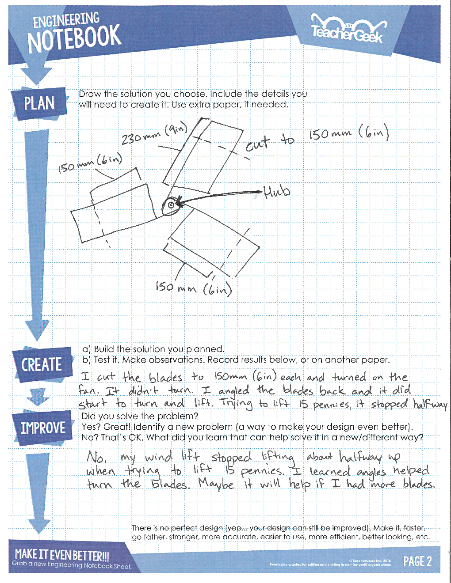 ENGINEERING
NOTEBOOK
TeacherGeek
PLAN
Draw the solution you choose. Include the details you
will need to create it. Use extra paper, if needed.
230mm (9in)
cut to 150mm (6in)
150mm (6in)
Hub
150 mm (6in)
CREATE
a) Build the solution you planned.
b) Test it. Make observations. Record results below, or on another paper.
I cut the blades to 150mm (6in) each and turned on the
fan. It didn't turn. I angled the blades back and it did
start to turn and lift. Trying to lift 15 pennies, it stopped halfway
IMPROVE
Did you solve the problem?
Yes? Great! Identify a new problem (a way to make your design even better).
No? That's OK. What did you learn that can help solve it in a new/different way?
No, my wind lift stopped lifting about halfway up
when trying to lift 15 pennies. I learned angles helped
turn the Blades. Maybe it will help if I had more blades.
There is no perfect design (yep... your design can still be improved). Make it, faster,
go farther, stronger, more accurate, easier to use, more efficient, better looking, etc.
MAKE IT EVEN BETTER!!!
Grab a new Engineering Notebook Sheet.
PAGE 2